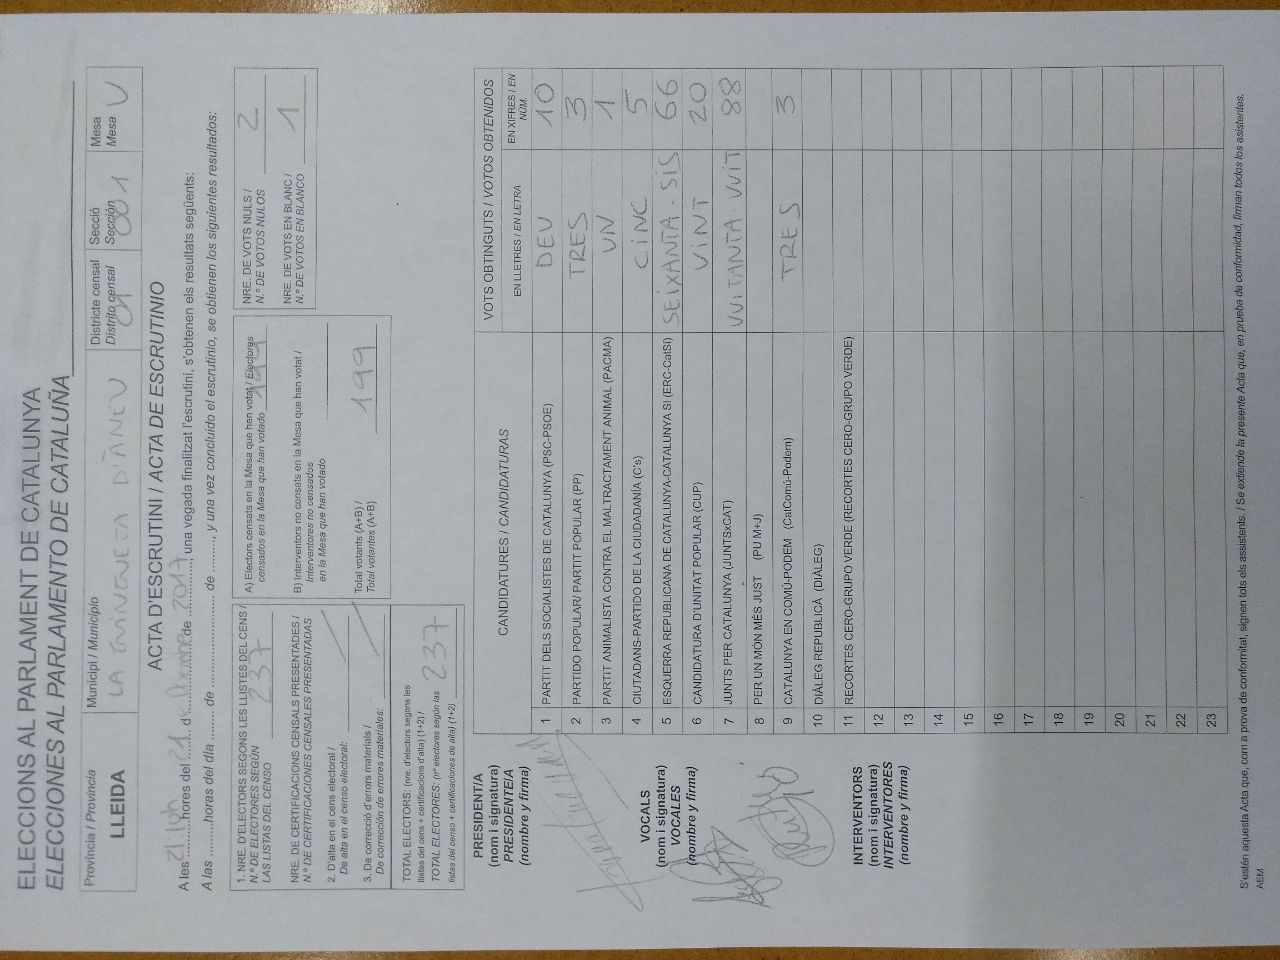 ELECCIONS AL PARLAMENT DE CATALUNYA
ELECCIONES AL PARLAMENTO DE CATALUÑA
Província / Provincia
LLEIDA
Municipi / Municipio
LA GUINGUETA D'ÀNEU
Districte censal
Distrito censal
01
Secció
Sección
001
Mesa
Mesa
U
ACTA D'ESCRUTINI / ACTA DE ESCRUTINIO
A les 21:10h hores del 21 d de 2017, una vegada finalitzat l'escrutini, s'obtenen els resultats següents:
A las ..........horas del día ........ de .......................... de .........., y una vez concluido el escrutinio, se obtienen los siguientes resultados:
1. NRE. D'ELECTORS SEGONS LES LLISTES DEL CENS /
N.º DE ELECTORES SEGÚN
LAS LISTAS DEL CENSO
237
NRE. DE CERTIFICACIONS CENSALS PRESENTADES /
N.º DE CERTIFICACIONES CENSALES PRESENTADAS
2. D'alta en el cens electoral /
De alta en el censo electoral:
3. De correcció d'errors materials /
De corrección de errores materiales:
TOTAL ELECTORS: (nre. d'electors segons les
llistes del cens + certificacions d'alta) (1+2) /
TOTAL ELECTORES: (nº electores según las
listas del censo + certificaciones de alta) (1+2)
237
A) Electors censats en la Mesa que han votat / Electores
censados en la Mesa que han votado
199
B) Interventors no censats en la Mesa que han votat /
Interventores no censados
en la Mesa que han votado
Total votants (A+B) /
Total votantes (A+B)
199
NRE. DE VOTS NULS /
N.º DE VOTOS NULOS
2
NRE. DE VOTS EN BLANC /
N.º DE VOTOS EN BLANCO
1
PRESIDENT/A
(nom i signatura)
PRESIDENTE/A
(nombre y firma)
VOCALS
(nom i signatura)
VOCALES
(nombre y firma)
INTERVENTORS
(nom i signatura)
INTERVENTORES
(nombre y firma)
CANDIDATURES / CANDIDATURAS
VOTS OBTINGUTS / VOTOS OBTENIDOS
EN LLETRES / EN LETRA
EN XIFRES / EN NÚM.
1 PARTIT DELS SOCIALISTES DE CATALUNYA (PSC-PSOE) DEU 10
2 PARTIDO POPULAR/ PARTIT POPULAR (PP) TRES 3
3 PARTIT ANIMALISTA CONTRA EL MALTRACTAMENT ANIMAL (PACMA) UN 1
4 CIUTADANS-PARTIDO DE LA CIUDADANÍA (C's) CINC 5
5 ESQUERRA REPUBLICANA DE CATALUNYA-CATALUNYA SI (ERC-CatSI) SEIXANTA-SIS 66
6 CANDIDATURA D'UNITAT POPULAR (CUP) VINT 20
7 JUNTS PER CATALUNYA (JUNTSxCAT) VUITANTA-VUIT 88
8 PER UN MÓN MÉS JUST (PUM+J)
9 CATALUNYA EN COMÚ-PODEM (CatComú-Podem) TRES 3
10 DIÀLEG REPUBLICÀ (DIÀLEG)
11 RECORTES CERO-GRUPO VERDE (RECORTES CERO-GRUPO VERDE)
12
13
14
15
16
17
18
19
20
21
22
23
S'estén aquesta Acta que, com a prova de conformitat, signen tots els assistents. / Se extiende la presente Acta que, en prueba de conformidad, firman todos los asistentes.
AEM